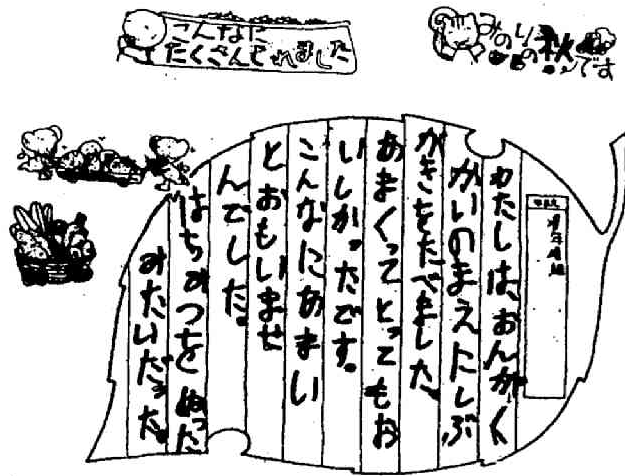 こんなに
たくさんとれました
みのりの秋です
わたしは、おんがく
かいのまえにしぶ
がきをたべました。
あまくってとってもお
いしかったです。
こんなにあまい
とおもいませ
んでした。
はちみつをぬった
みたいだった。